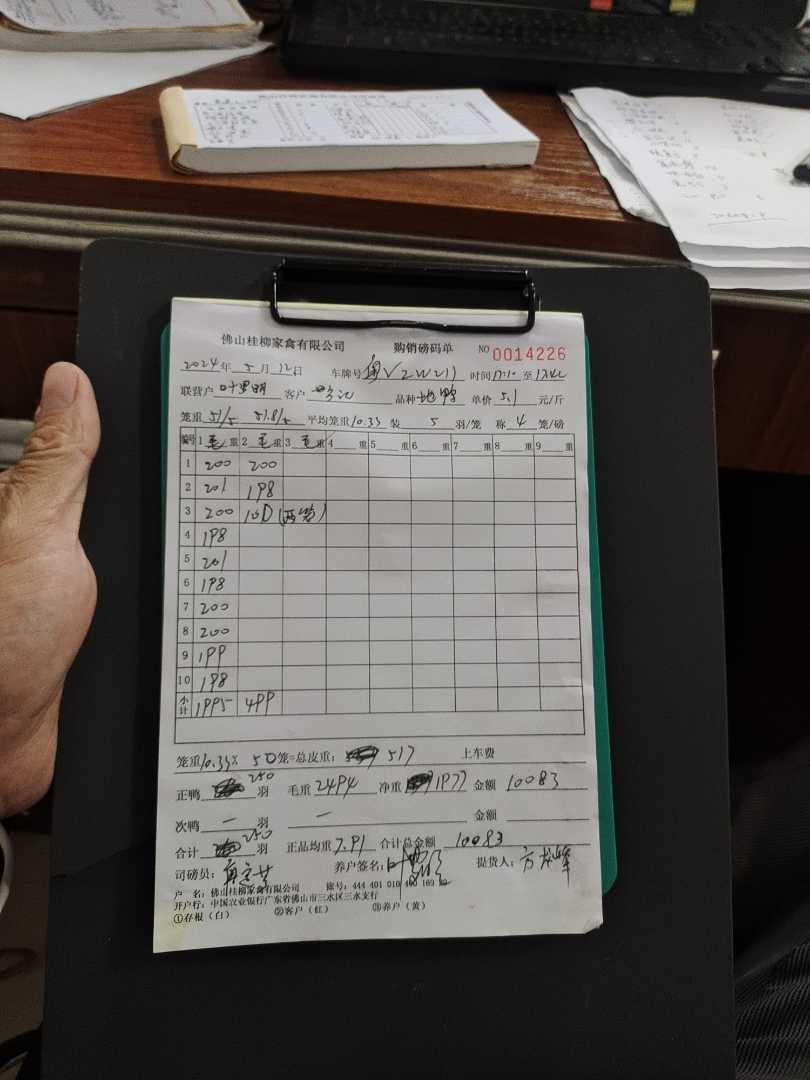 佛山桂柳家禽有限公司 购销磅码单 NO 0014226
2024年5月12日 车牌号 时间 17:10 至
联营户 客户 品种 地鸭 单价 5.1 元/斤
笼重 51/5 51.8/5 平均笼重 10.33 装 5 羽/笼 称 4 笼/磅
编号 1 毛 重 2 毛 重 3 毛 重 4 重 5 重 6 重 7 重 8 重 9 重
1 200 200
2 201 198
3 200 101 (两笼)
4 198
5 201
6 198
7 200
8 200
9 199
10 198
小计 1995 499
笼重 10.33× 50 笼=总皮重: 517 上车费
正鸭 250 羽 毛重 2494 净重 1977 金额 10083
次鸭 — 羽 — 金额
合计 250 羽 正品均重 7.91 合计总金额 10083
司磅员: 养户签名: 提货人:
户 名: 佛山桂柳家禽有限公司 账号: 444 401 010 400 169
开户行: 中国农业银行广东省佛山市三水区三水支行
①存根 (白) ②客户 (红) ③养户 (黄)